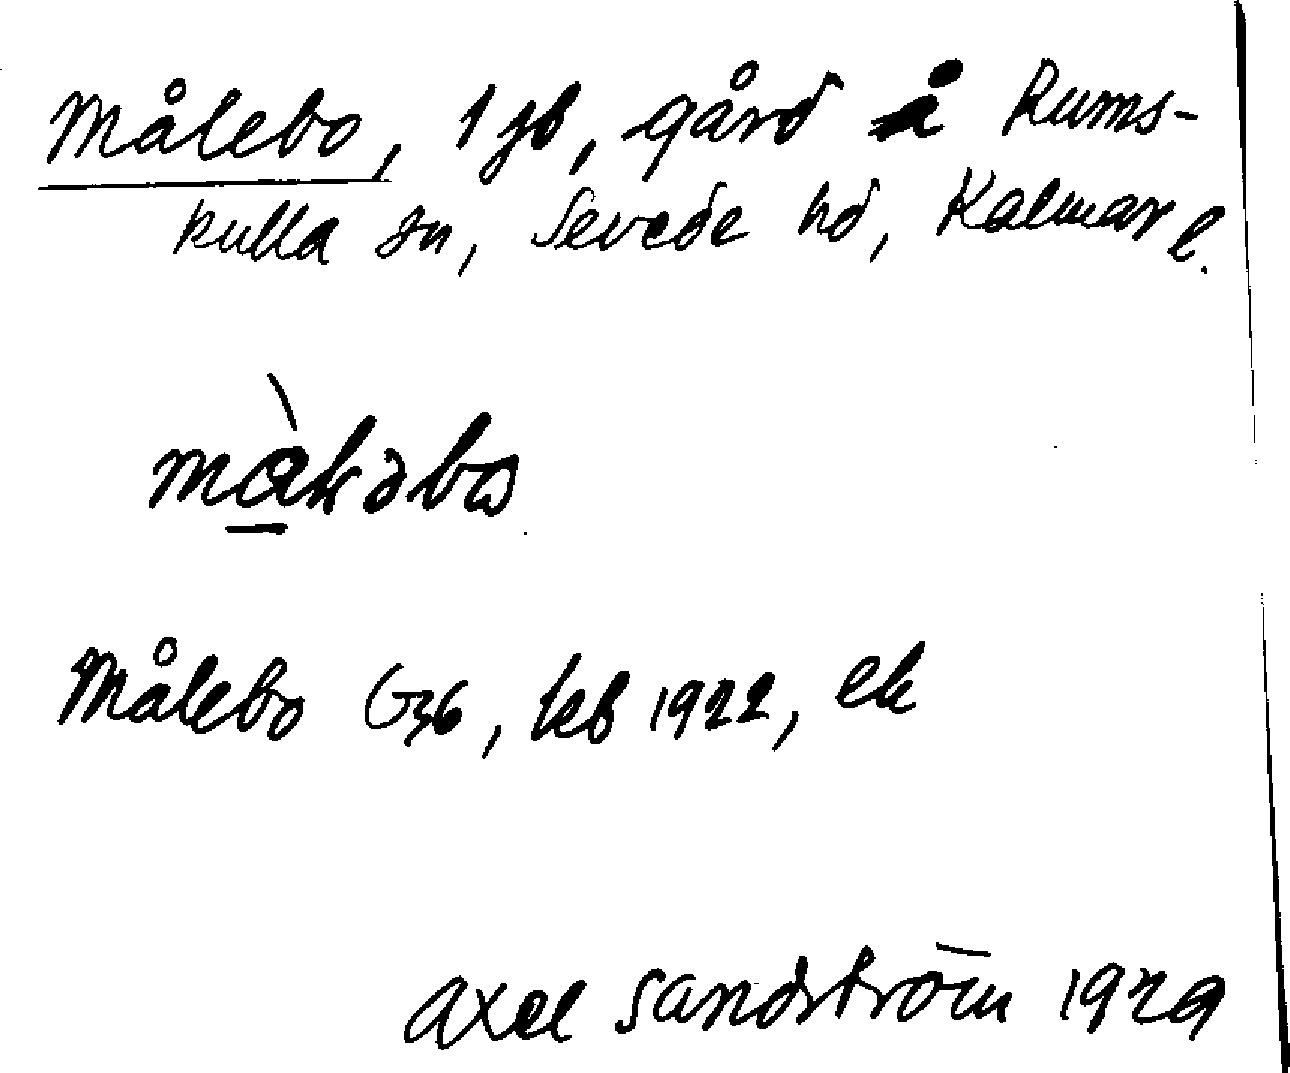 Målebo, 1 jb, gård å Rums-
kulla sn, Sevede hd, Kalmar l.
Målebo G36, kb 1922, ek
Axel Sandström 1929